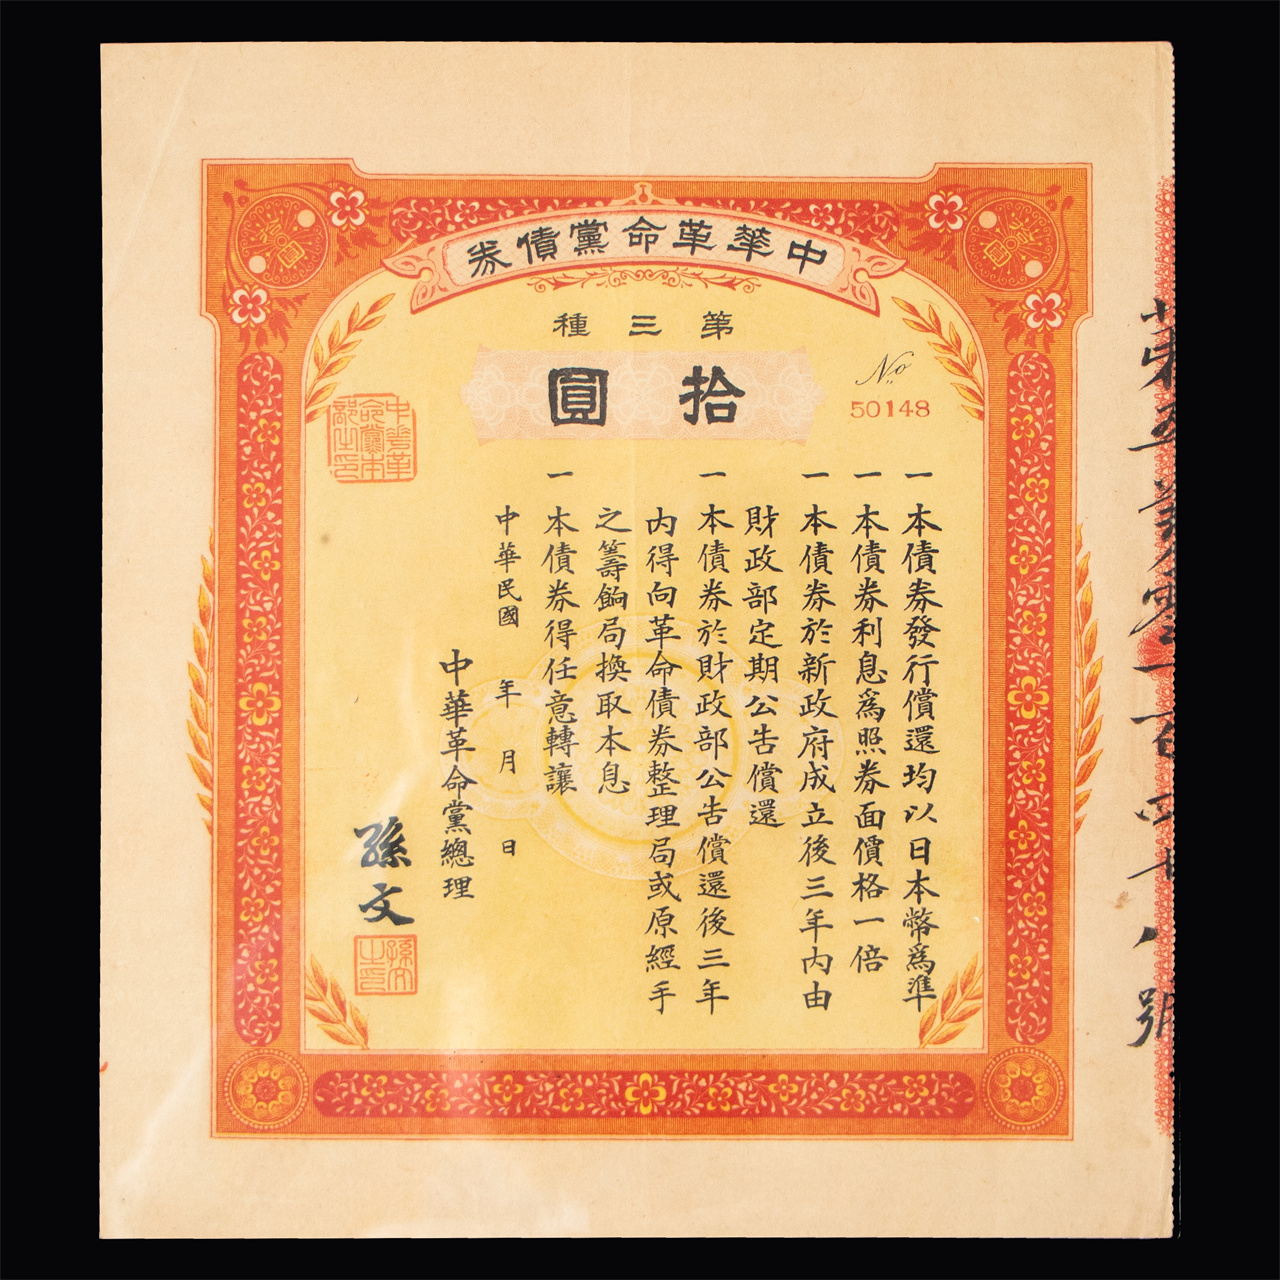 中華革命黨債券
第三種
拾圓
No
50148
一本債券發行償還均以日本幣爲準
一本債券利息爲照券面價格一倍
一本債券於新政府成立後三年內由
財政部定期公告償還
一本債券於財政部公告償還後三年
內得向革命債券整理局或原經手
之籌餉局換取本息
一本債券得任意轉讓
中華民國 年 月 日
中華革命黨總理
孫文
中華革命黨本部之印
孫文之印
拾圓
拾圓